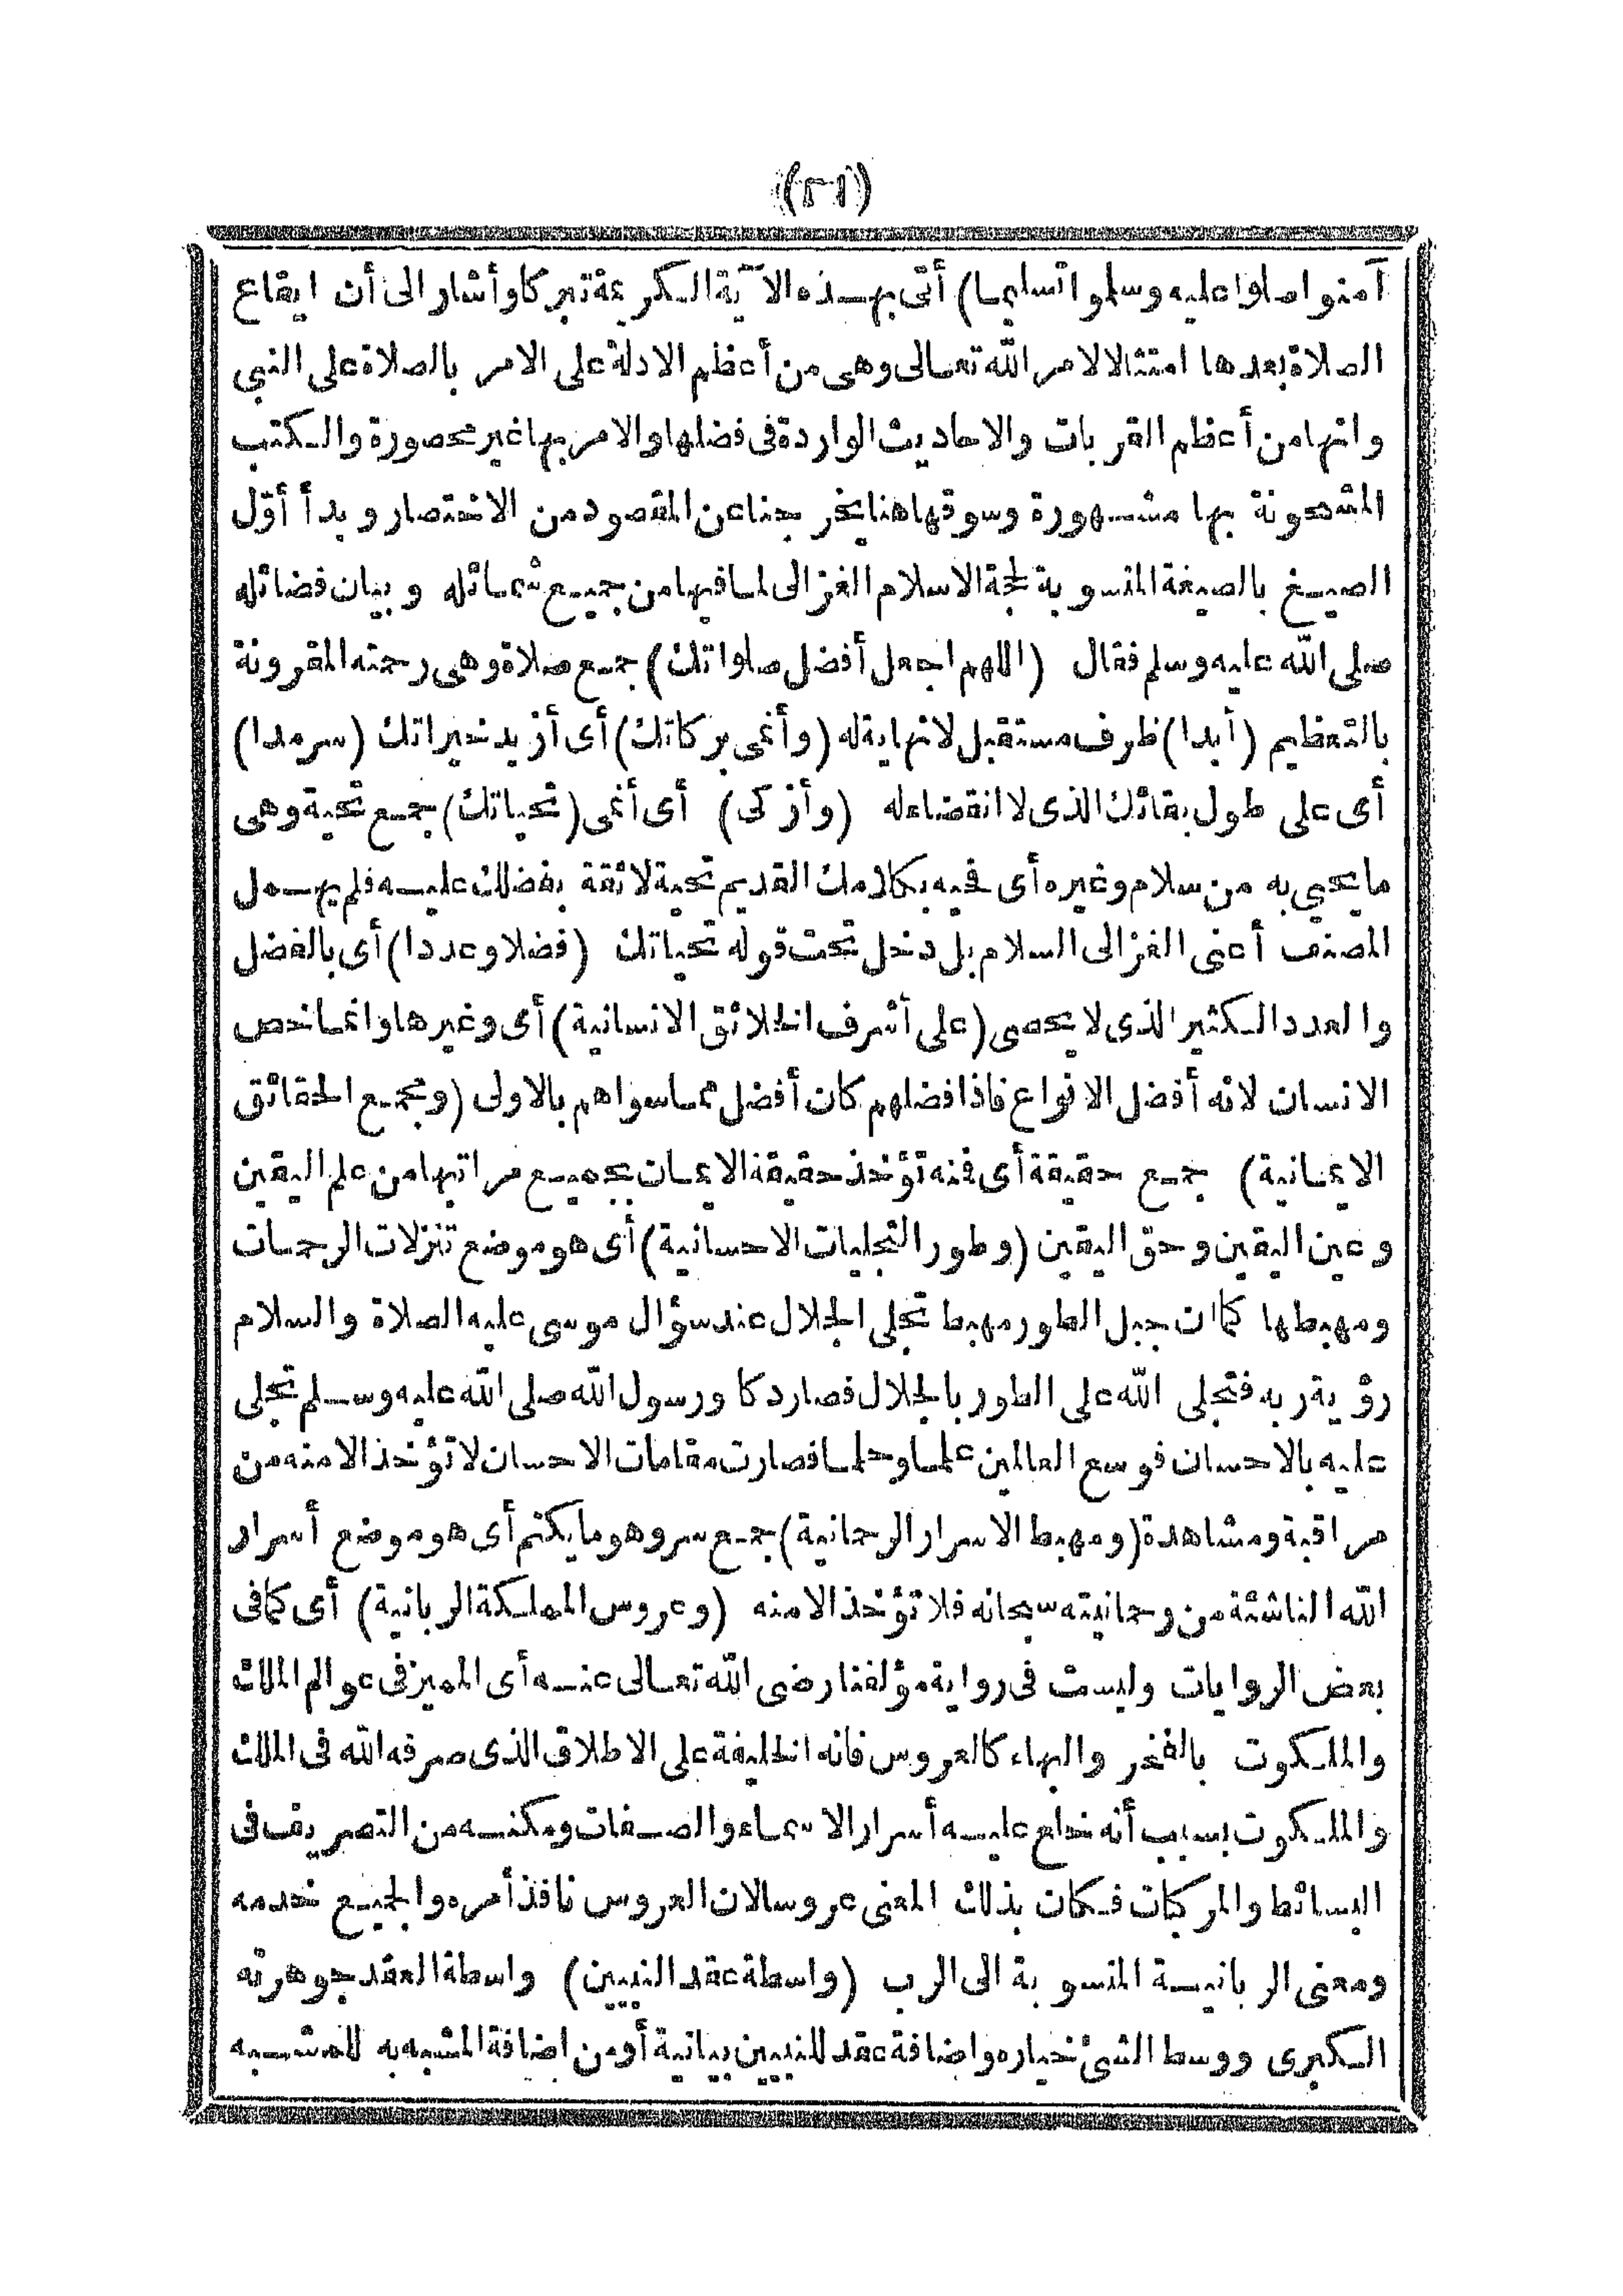 (٢١)
آمنوا صلوا عليه وسلموا تسليما) أتى بهذه الآية الكريمة تبركا وأشار الى أن ايقاع
الصلاة بعدها امتثالا لامر الله تعالى وهى من أعظم الادلة على الامر بالصلاة على النبي
وانها من أعظم القربات والاحاديث الواردة فى فضلها والامر بها غير محصورة والكتب
المشحونة بها مشهورة وسوقها هنا يخرجنا عن المقصود من الاختصار وبدأ أوّل
الصيغ بالصيغة المنسوبة لحجة الاسلام الغزالى لما فيها من جميع شمائله وبيان فضائله
صلى الله عليه وسلم فقال (اللهم اجعل أفضل صلواتك) جمع صلاة وهى رحمته المقرونة
بالتعظيم (أبدا) ظرف مستقبل لانهاية له (وأنمى بركاتك) أى أزيد خيراتك (سرمدا)
أى على طول بقائك الذى لا انقضاء له (وأزكى) أى أنمى (تحياتك) جمع تحية وهى
ما يحيي به من سلام وغيره أى فيه بكلامك القديم تحية لائقة بفضلك عليه فلم يهمل
المصنف أعنى الغزالى السلام بل دخل تحت قوله تحياتك (فضلا وعددا) أى بالفضل
والعدد الكثير الذى لا يحصى (على أشرف الخلائق الانسانية) أى وغيرها وانما خص
الانسان لانه أفضل الانواع فاذا فضلهم كان أفضل مما سواهم بالاولى (ومجمع الحقائق
الايمانية) جمع حقيقة أى فمنه تؤخذ حقيقة الايمان بجميع مراتبها من علم اليقين
وعين اليقين وحق اليقين (وطور التجليات الاحسانية) أى هو موضع تنزلات الرحمات
ومهبطها كما ان جبل الطور مهبط تجلى الجلال عند سؤال موسى عليه الصلاة والسلام
رؤية ربه فتجلى الله على الطور بالجلال فصار دكا ورسول الله صلى الله عليه وسلم تجلى
عليه بالاحسان فوسع العالمين علما وحلما فصارت مقامات الاحسان لا تؤخذ الا منه من
مراقبة ومشاهدة (ومهبط الاسرار الرحمانية) جمع سر وهو ما يكتم أى هو موضع أسرار
الله الناشئة من رحمانيته سبحانه فلا تؤخذ الا منه (وعروس المملكة الربانية) أى كما فى
بعض الروايات وليست فى رواية مؤلفنا رضى الله تعالى عنه أى المميز فى عوالم الملك
والملكوت بالفخر والبهاء كالعروس فانه الخليفة على الاطلاق الذى صرفه الله فى الملك
والملكوت بسبب أنه خلع عليه أسرار الاسماء والصفات ومكنه من التصريف فى
البسائط والمركبات فكان بذلك المعنى عروسا لان العروس نافذ أمره والجميع خدمه
ومعنى الربانية المنسوبة الى الرب (واسطة عقد النبيين) واسطة العقد جوهرته
الكبرى ووسط الشئ خياره واضافة عقد للنبيين بيانية أو من اضافة المشبه به للمشبه